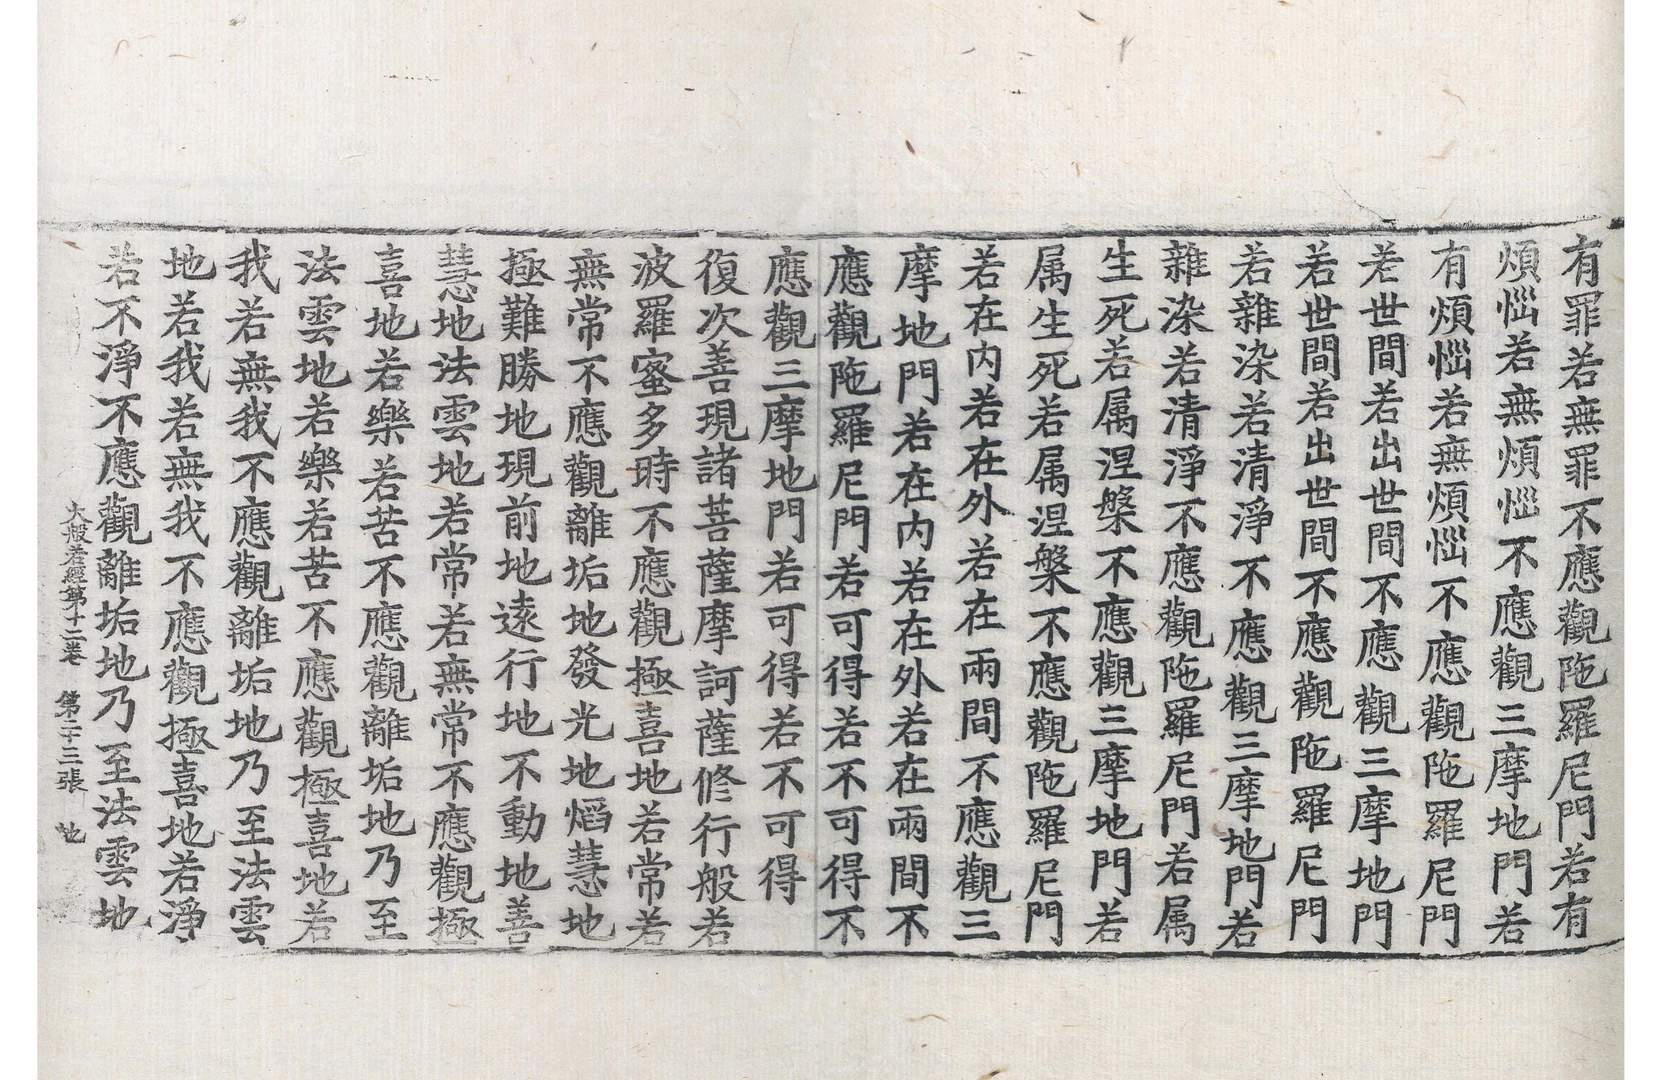 有罪若無罪不應觀陁羅尼門若有
煩惱若無煩惱不應觀三摩地門若
有煩惱若無煩惱不應觀陁羅尼門
若世間若出世間不應觀三摩地門
若世間若出世間不應觀陁羅尼門
若雜染若清淨不應觀三摩地門若
雜染若清淨不應觀陁羅尼門若属
生死若属涅槃不應觀三摩地門若
属生死若属涅槃不應觀陁羅尼門
若在內若在外若在兩間不應觀三
摩地門若在內若在外若在兩間不
應觀陁羅尼門若可得若不可得不
應觀三摩地門若可得若不可得
復次善現諸菩薩摩訶薩修行般若
波羅蜜多時不應觀極喜地若常若
無常不應觀離垢地發光地焰慧地
極難勝地現前地遠行地不動地善
慧地法雲地若常若無常不應觀極
喜地若樂若苦不應觀離垢地乃至
法雲地若樂若苦不應觀極喜地若
我若無我不應觀離垢地乃至法雲
地若我若無我不應觀極喜地若淨
若不淨不應觀離垢地乃至法雲地
大般若經第十二卷 第二十三張 地